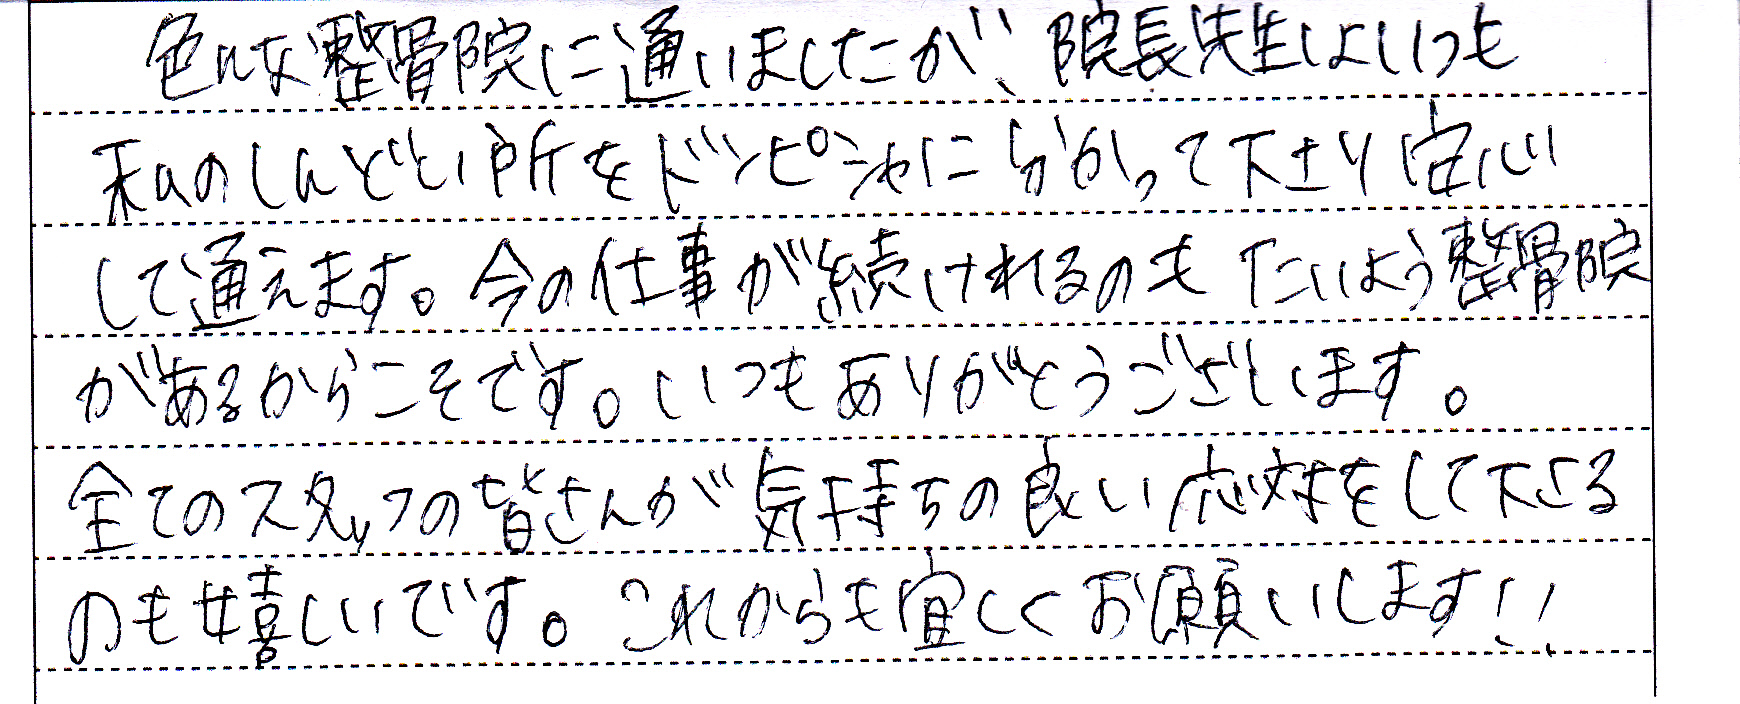 色んな整骨院に通いましたが、院長先生はいつも
私のしんどい所をドンピシャに分かって下さり安心
して通えます。今の仕事が続けれるのもたいよう整骨院
があるからこそです。いつもありがとうございます。
全てのスタッフの皆さんが気持ちの良い応対をして下さる
のも嬉しいです。これからも宜しくお願いします!!